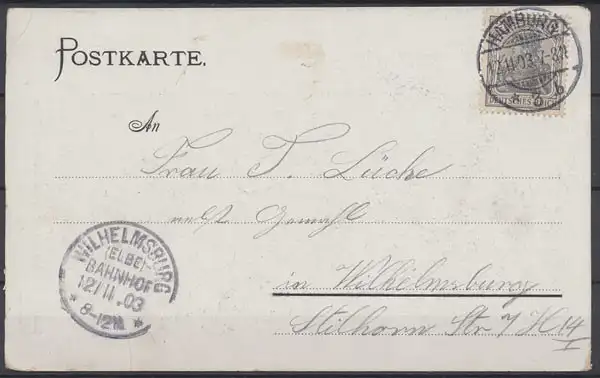 POSTKARTE.
HAMBURG
12.11.03.7-8N
* 3 b
DEUTSCHES REICH
An
Frau T. Lücke
nebst Gemahl
in Wilhelmsburg
Stilhorn Str 7 H 14
I
WILHELMSBURG
(ELBE)-
BAHNHOF
12/11.03
* 8-12N *